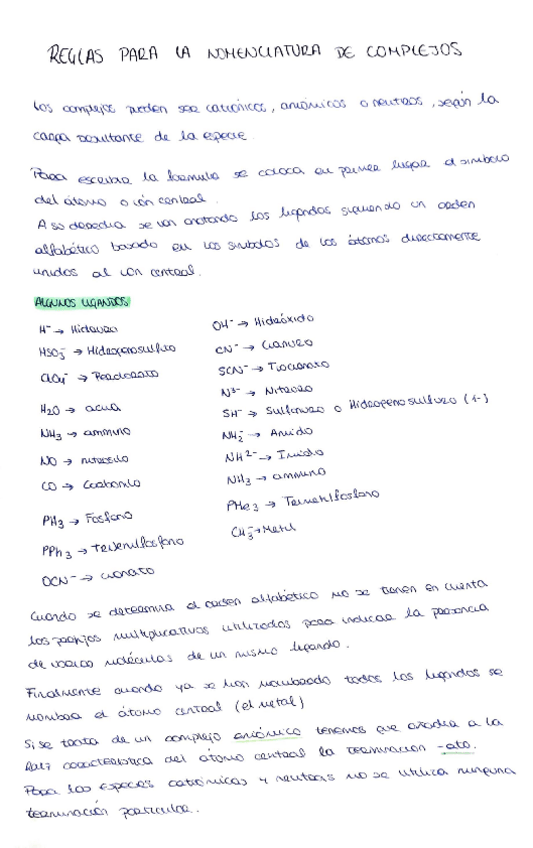 REGLAS PARA LA NOMENCLATURA DE COMPLEJOS
Los complejos pueden ser catiónicos, aniónicos o neutros, según la
carga resultante de la especie.
Para escribir la fórmula se coloca en primer lugar el símbolo
del átomo o ión central.
A su derecha se van anotando los ligandos siguiendo un orden
alfabético basado en los símbolos de los átomos directamente
unidos al ión central.
ALGUNOS LIGANDOS
H⁻ → Hidruro
HSO₃⁻ → Hidrogenosulfito
ClO₄⁻ → Perclorato
H₂O → acua
NH₃ → ammino
NO → nitrosilo
CO → Carbonilo
PH₃ → Fosfano
PPh₃ → Trifenilfosfano
OCN⁻ → cianato
OH⁻ → Hidróxido
CN⁻ → Cianuro
SCN⁻ → Tiocianato
N³⁻ → Nitruro
SH⁻ → Sulfanuro o Hidrogenosulfuro (1-)
NH₂⁻ → Amido
NH²⁻ → Imido
NH₃ → ammino
PMe₃ → Trimetilfosfano
CH₃⁻ → Metil
Cuando se determina el orden alfabético no se tienen en cuenta
los prefijos multiplicativos utilizados para indicar la presencia
de varias moléculas de un mismo ligando.
Finalmente cuando ya se han nombrado todos los ligandos se
nombra el átomo central (el metal)
Si se trata de un complejo aniónico tenemos que añadir a la
raíz característica del átomo central la terminación -ato.
Para las especies catiónicas y neutras no se utiliza ninguna
terminación particular.